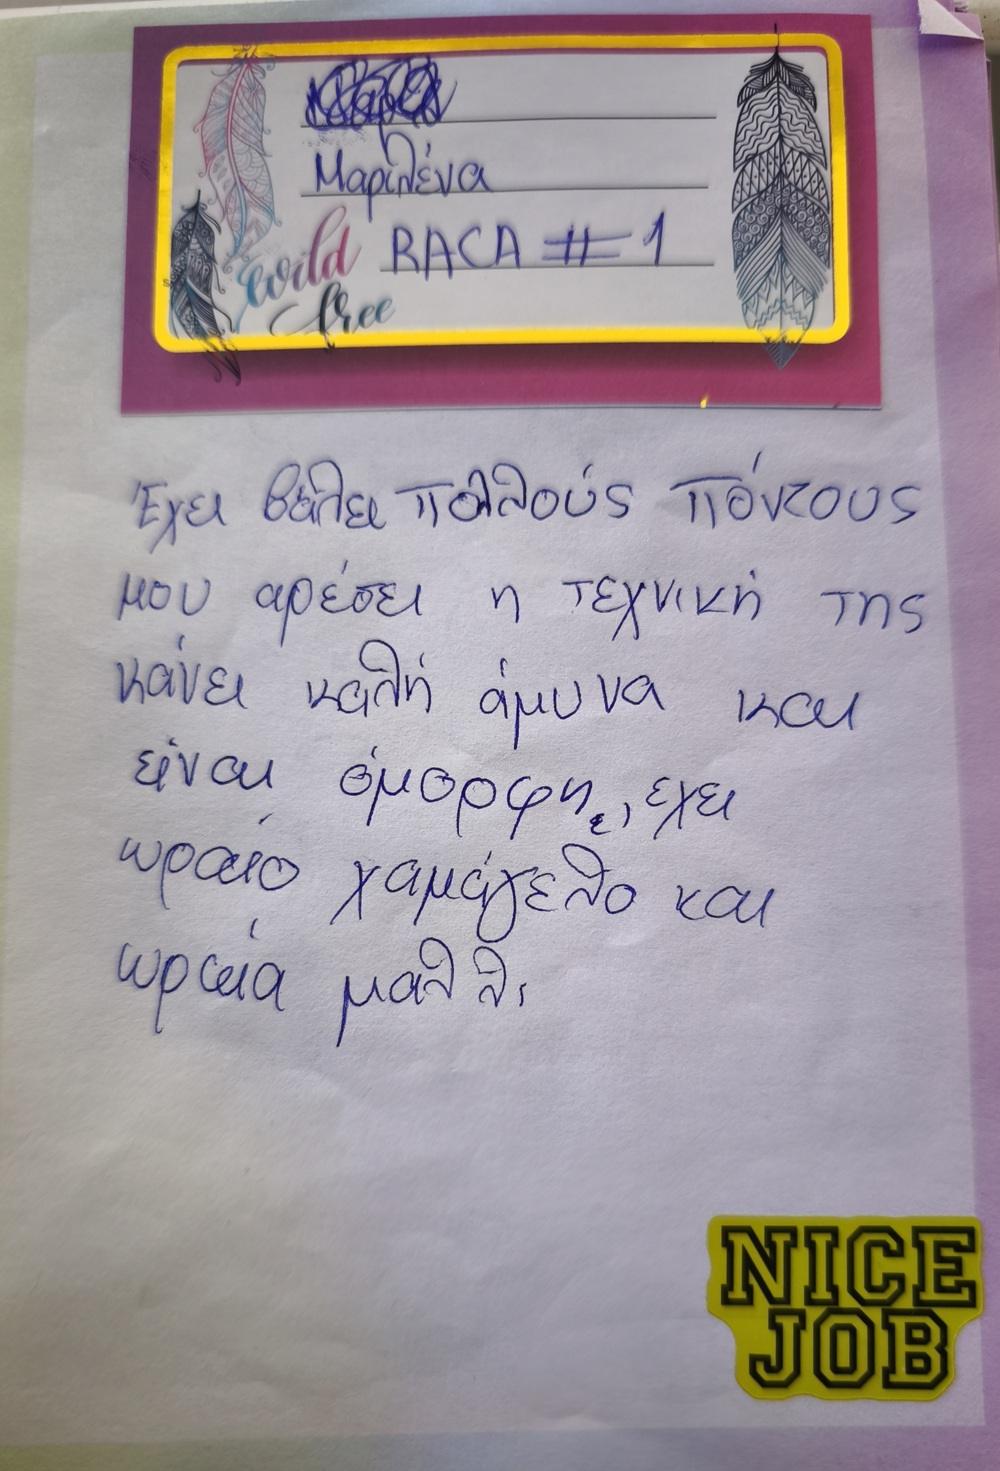 Μαριλένα
wild
RACA #1
free
Έχει βάλει πολλούς πόντους
μου αρέσει η τεχνική της
κάνει καλή άμυνα και
είναι όμορφη, έχει
ωραίο χαμάγελο και
ωραία μαλλι
NICE
JOB